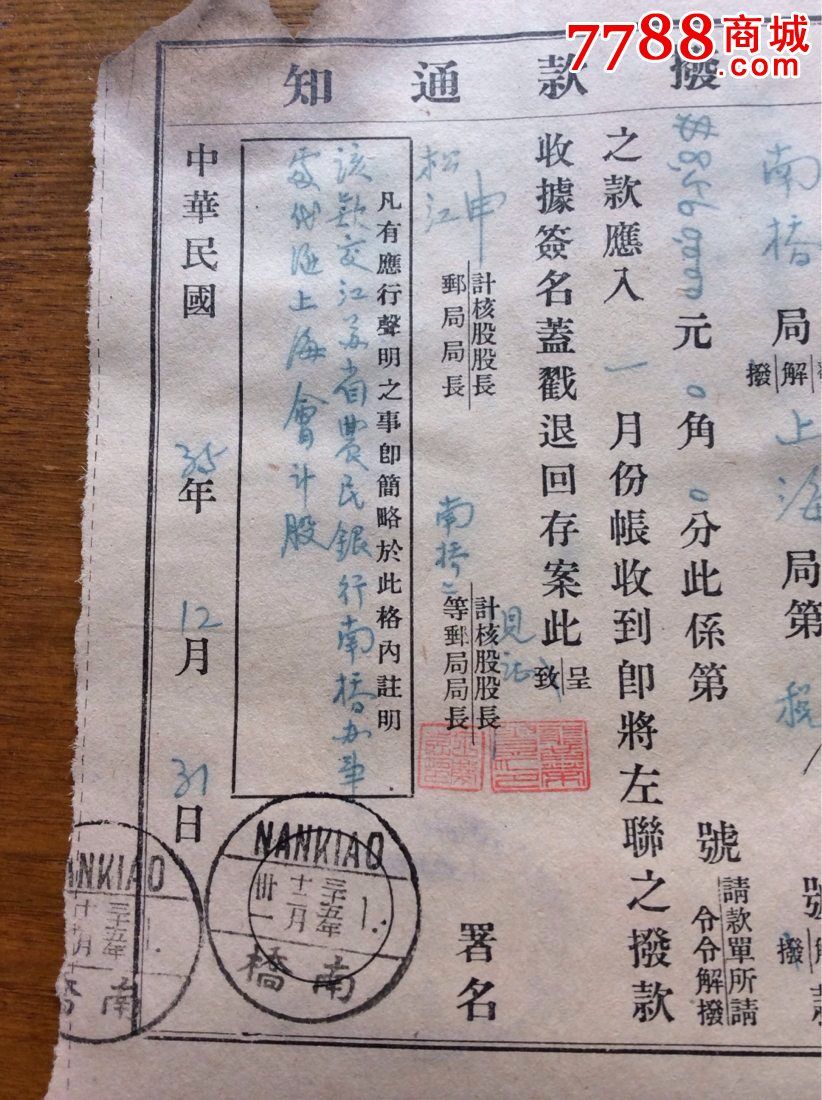 7788商城
撥款通知
南橋局
解
撥
上海局第
號
解
撥
元0角0分此係第
號
請款單所請
令令解撥
之款應入一月份帳收到即將左聯之撥款
收據簽名蓋戳退回存案此
呈
致
松江
申
計核股股長
郵局局長
南橋二
計核股股長
等郵局局長
署名
凡有應行聲明之事即簡略於此格內註明
該款交江苏省農民銀行南橋办事
處代匯上海會計股
中華民國35年12月31日
NANKIAO
三十五年
十二月
卅一
南橋
NANKIAO
三十五年
南橋